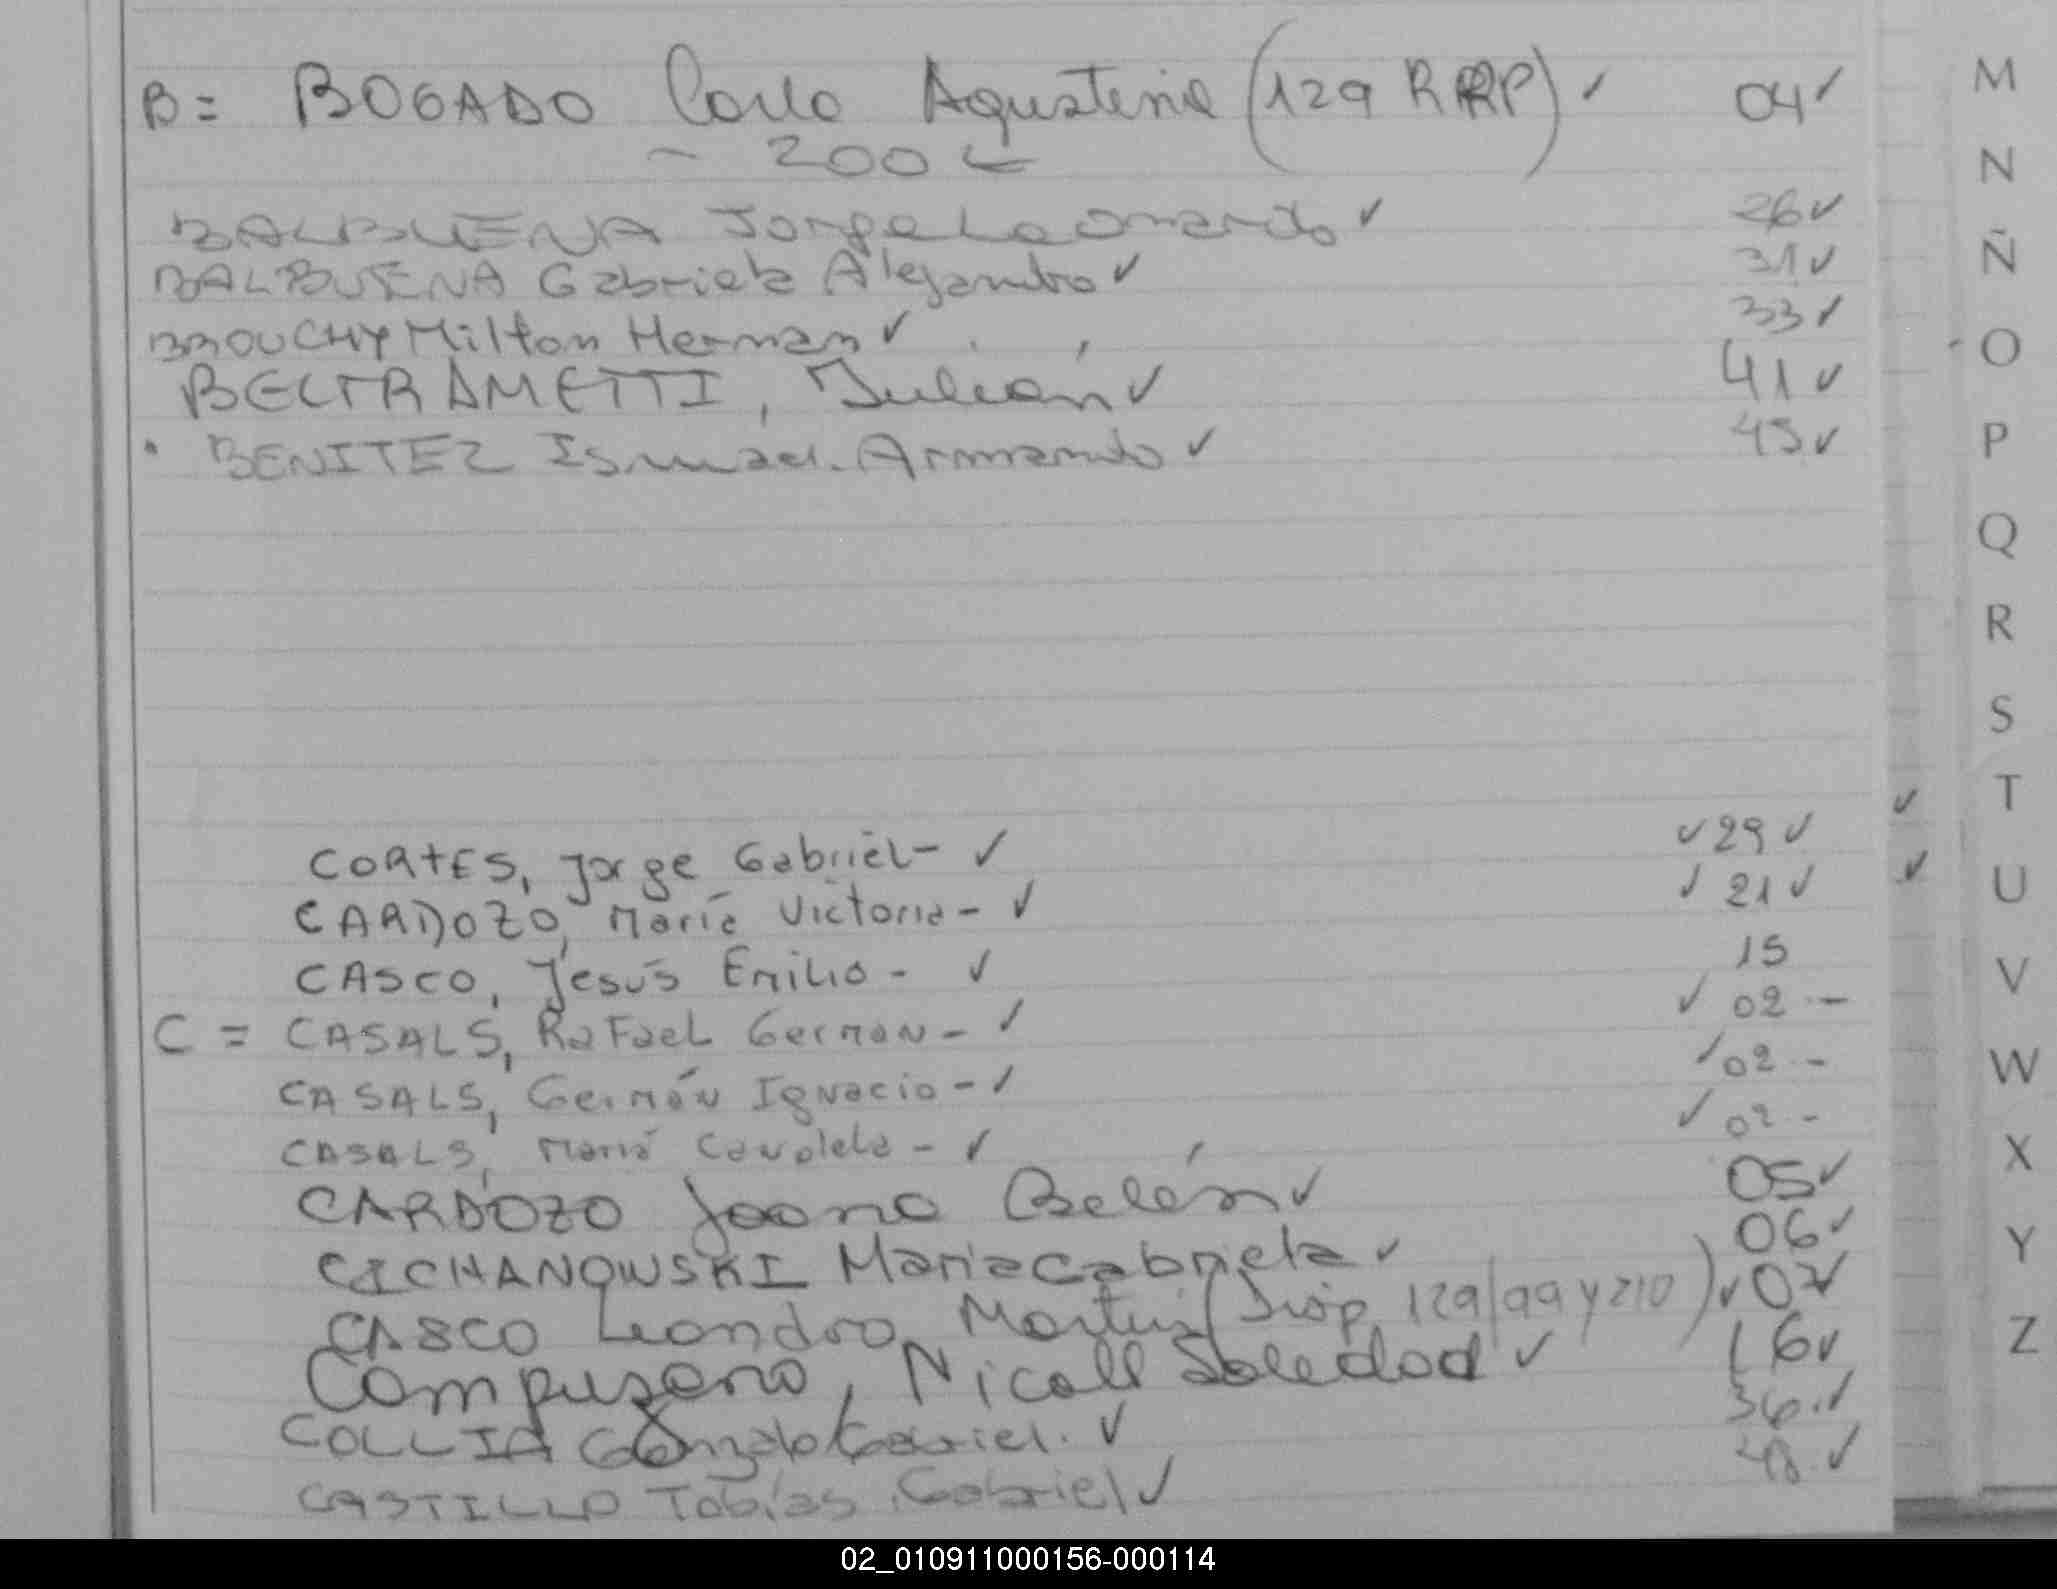 B = BOGADO Carla Agustina (129 RRP) ✓ 04 ✓
- 200
BALBUENA Jorge Leonardo ✓ 26 ✓
BALBUENA Gabriela Alejandra ✓ 31 ✓
BROUCHY Milton Hernan ✓ 33 ✓
BELTRAMETTI, Julián ✓ 41 ✓
. BENITEZ Ismael. Armando ✓ 45 ✓
CORTES, Jorge Gabriel - ✓ ✓ 29 ✓ ✓
CARDOZO, María Victoria - ✓ ✓ 21 ✓ ✓
CASCO, Jesús Emilio - ✓ 15
C = CASALS, Rafael German - ✓ ✓ 02 -
CASALS, Germán Ignacio - ✓ ✓ 02 -
CASALS, María - ✓ ✓ 02 -
CARDOZO Joana Belén ✓ 05 ✓
CICHANOWSKI Maria Gabriela ✓ 06 ✓
CASCO Leandro Martin (Disp. 129/99 y 210) ✓ 07 ✓
Campusano, Nicoll Soledad ✓ 16 ✓
COLLIA Gonzalo Gabriel. ✓ 36. ✓
CASTILLO Tobias Gabriel ✓ 48. ✓
M
N
Ñ
O
P
Q
R
S
T
U
V
W
X
Y
Z
02_010911000156-000114